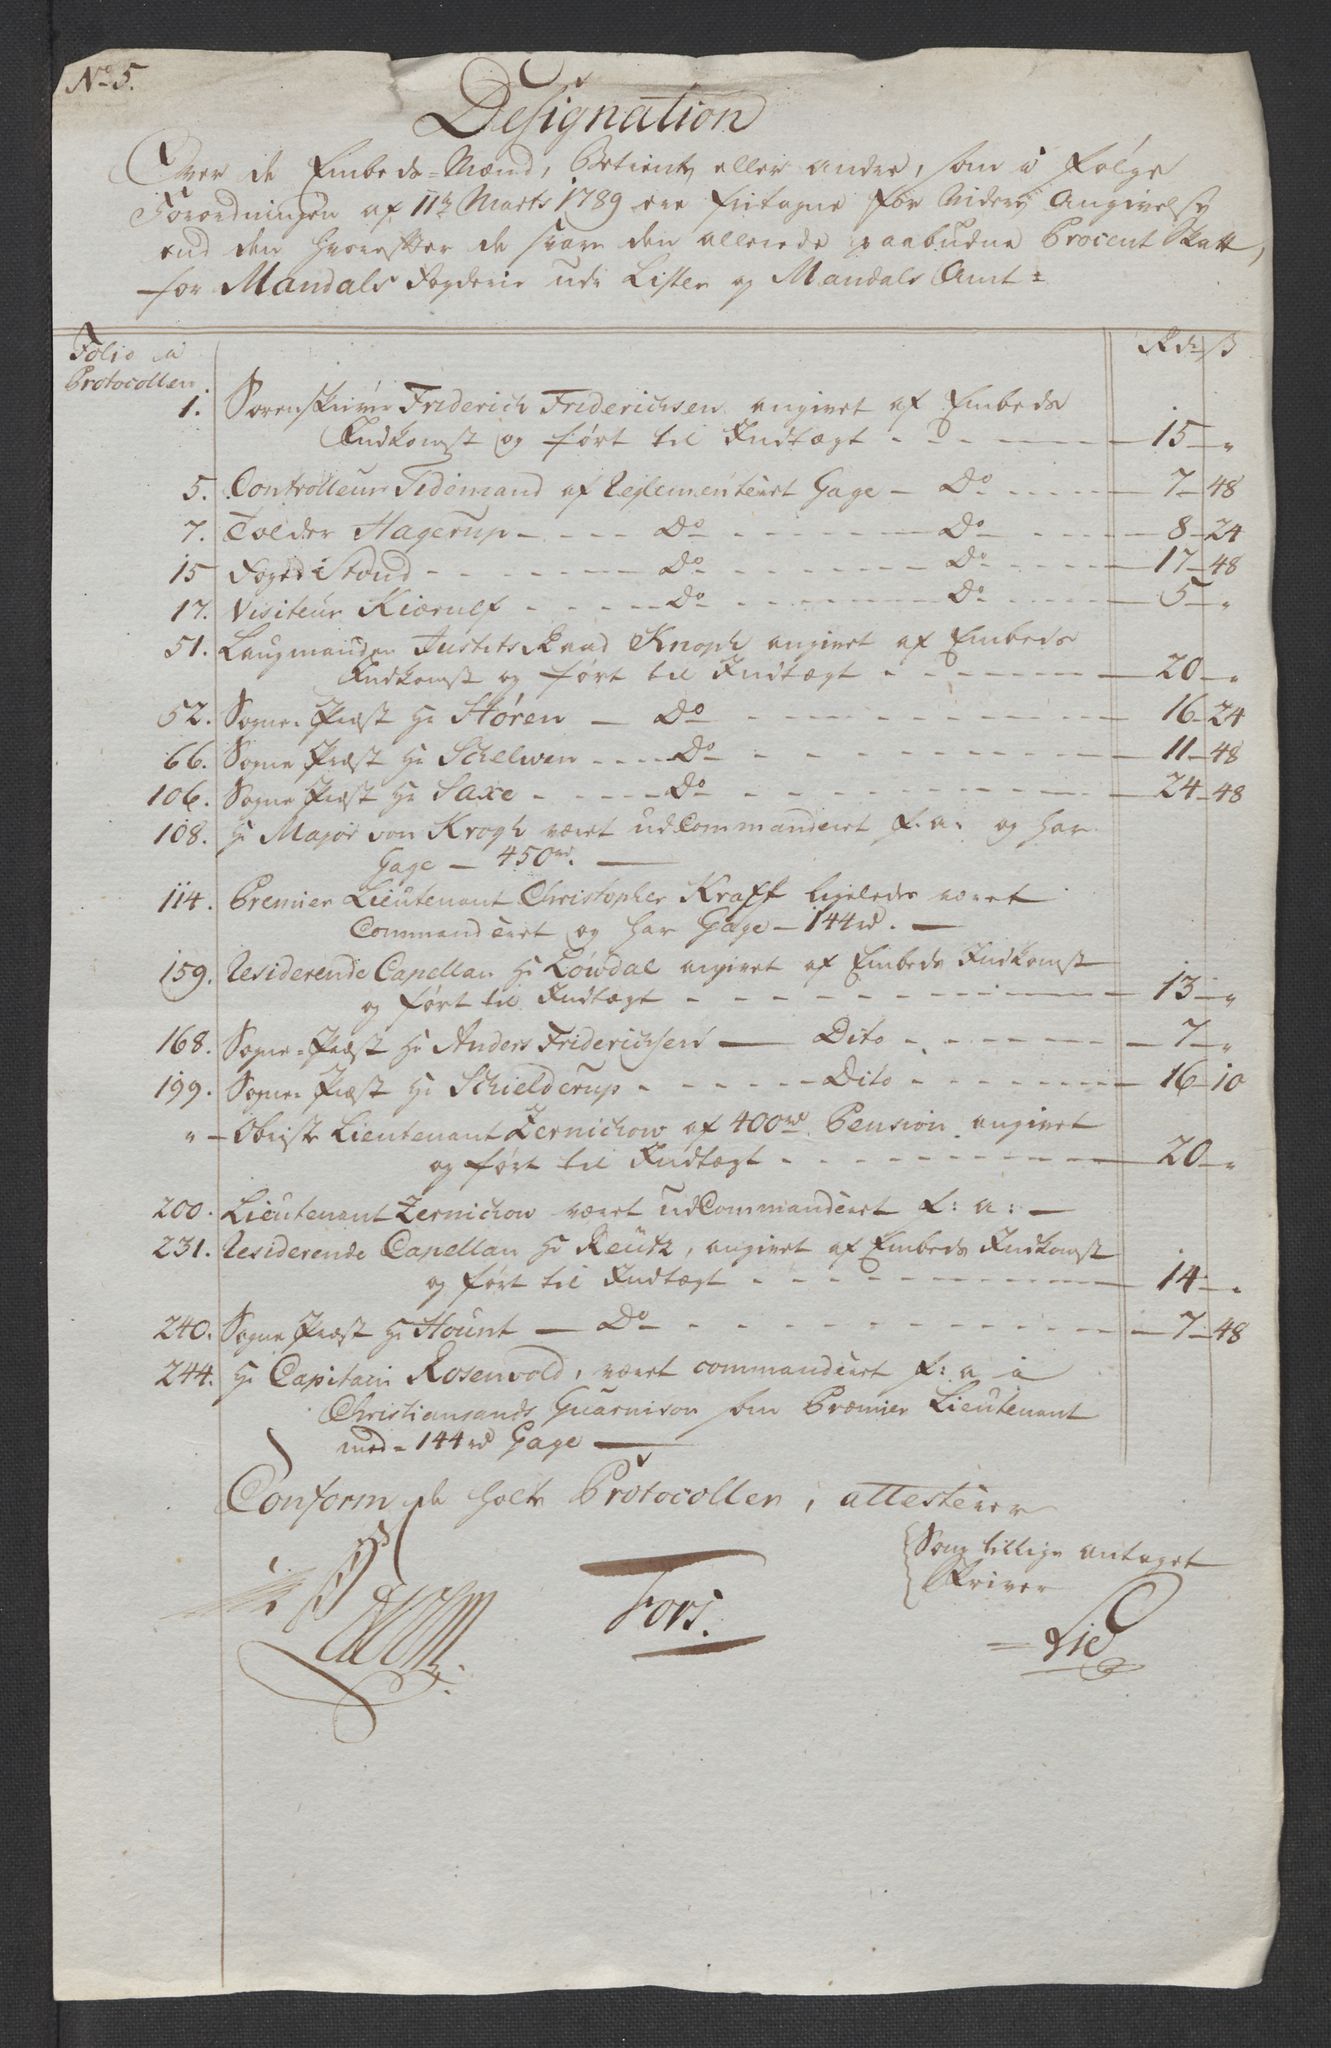 No 5.
Designation
Over de Embeds-Mænd, Betiente eller andre, som i Følge
Forordningen af 11te Marts 1789 ere fritagne for videre Angivelse
end den hvorefter de svare den allerede paabudne Procent Skatt,
for Mandals Fogderie udi Lister og Mandals Amt
Folio i Protocollen
Rdr ß
1. Sorenskriver Friderich Friderichsen angivet af Embeds
Indkomst og ført til Indtægt - - - 15 - "
5. Controlleur Tidemand af Reglementeret Gage - Do - - - 7 - 48
7. Tolder Hagerup - - - Do - - - Do - - - 8 - 24
15 Foged Stoud - - - Do - - - Do - - - 17 - 48
17. Visiteur Kiærulf - - - Do - - - Do - - - 5 - "
51. Laugmanden Justits Raad Knoph angivet af Embeds
Indkomst og ført til Indtægt - - - 20 - "
52. Sogne-Præst Hr Støren - Do - - - 16 - 24
66. Sogne Præst Hr Schelwen - - - Do - - - 11 - 48
106. Sogne Præst Hr Saxe - - - Do - - - 24 - 48
108. Hr Major von Krogh været udCommanderet f. a: og har
Gage - 450 rd. -
114. Premier Lieutenant Christopher Krafft ligeledes været
Commanderet og har Gage - 144 rd. -
159. Residerende Capellan Hr Løwdal angivet af Embeds Indkomst
og ført til Indtægt - - - 13 - "
168. Sogne-Præst Hr Anders Friderichsen - Dito - - - 7 - "
199. Sogne-Præst Hr Schielderup - - - Dito - - - 16 - 10
" - Obrist Lieutenant Zernichow af 400 rd. Pension angivet
og ført til Indtægt - - - 20 - "
200. Lieutenant Zernichow været udCommanderet f: a: -
231. Residerende Capellan Hr Reutz, angivet af Embeds Indkomst
og ført til Indtægt - - - 14 - "
240. Sogne Præst Hr Hount - Do - - - 7 - 48
244. Hr Capitain Rosenvold, været commanderet f: a i
Christiansands Guarnison som Præmier Lieutenant
med - 144 rd Gage -
Conform de holte Protocoller, attesterer
Som tillige antaget
Skriver
Fors.
Lie